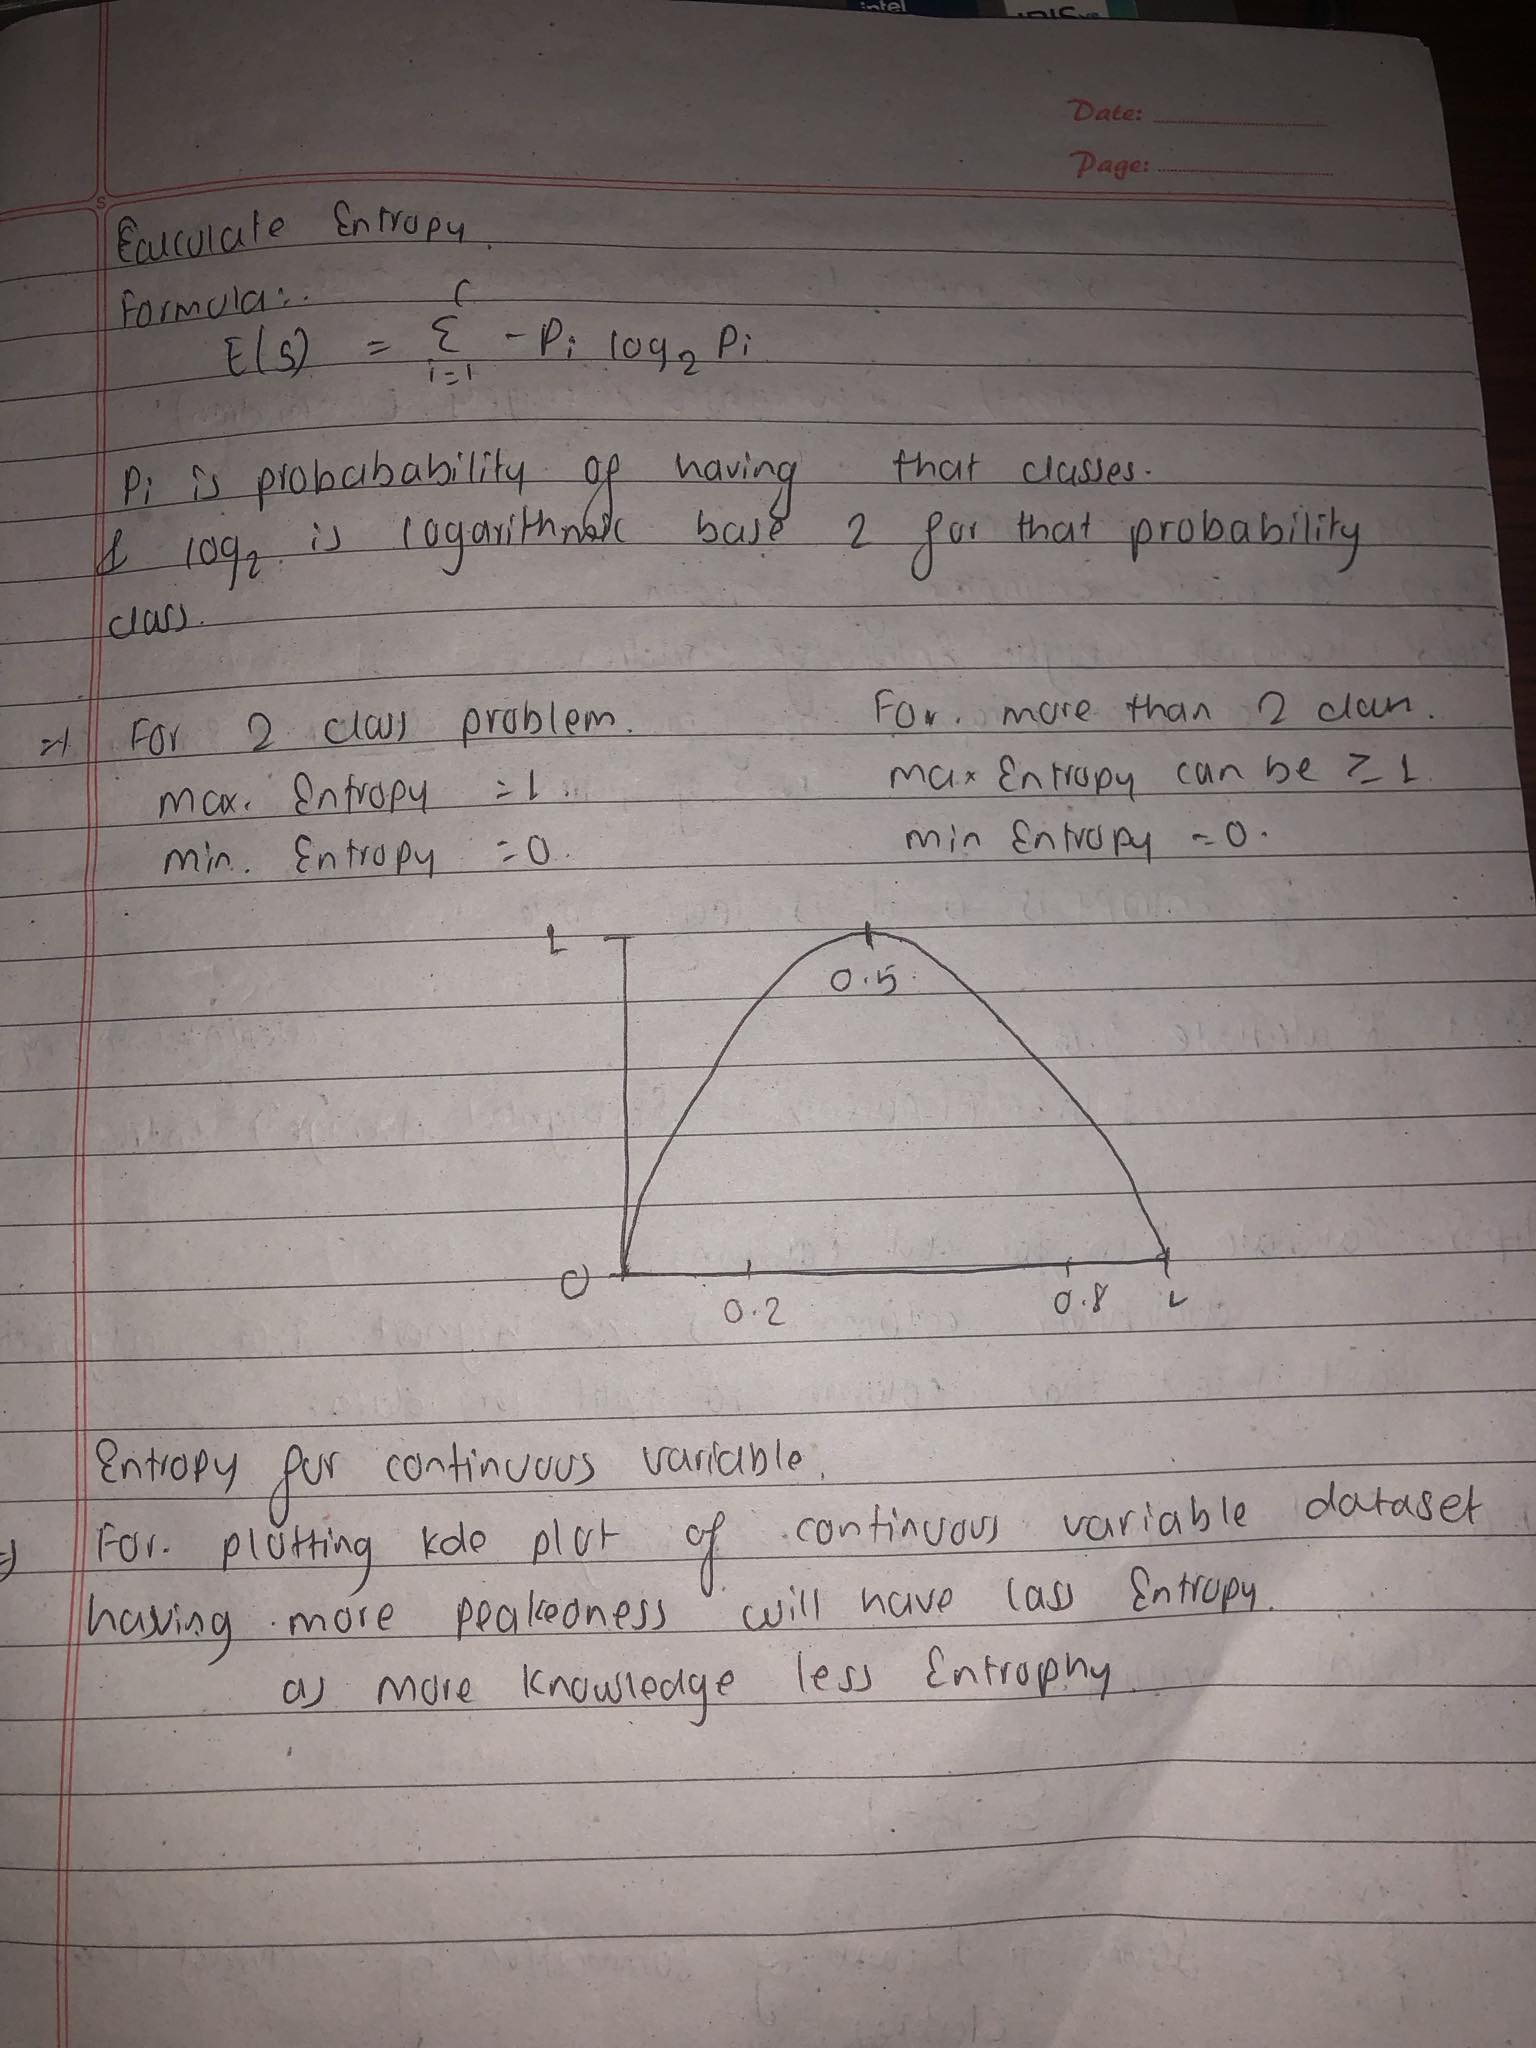 intel
Date:
Page:
S
Calculate Entropy.
Formula:.
c
E(S) = Σ -Pi log2 Pi
i=1
Pi is probabability of having that classes.
& log2 is logarithmic base 2 for that probability
class.
=> For 2 class problem.
max. Entropy = 1.
min. Entropy = 0.
For. more than 2 class.
max Entropy can be ≥ 1.
min Entropy = 0.
1
0.5
0
0.2 0.8 1
Entropy for continuous variable.
=> For. plotting kde plot of continuous variable dataset
having more peakedness will have lass Entropy.
as more knowledge less Entrophy.